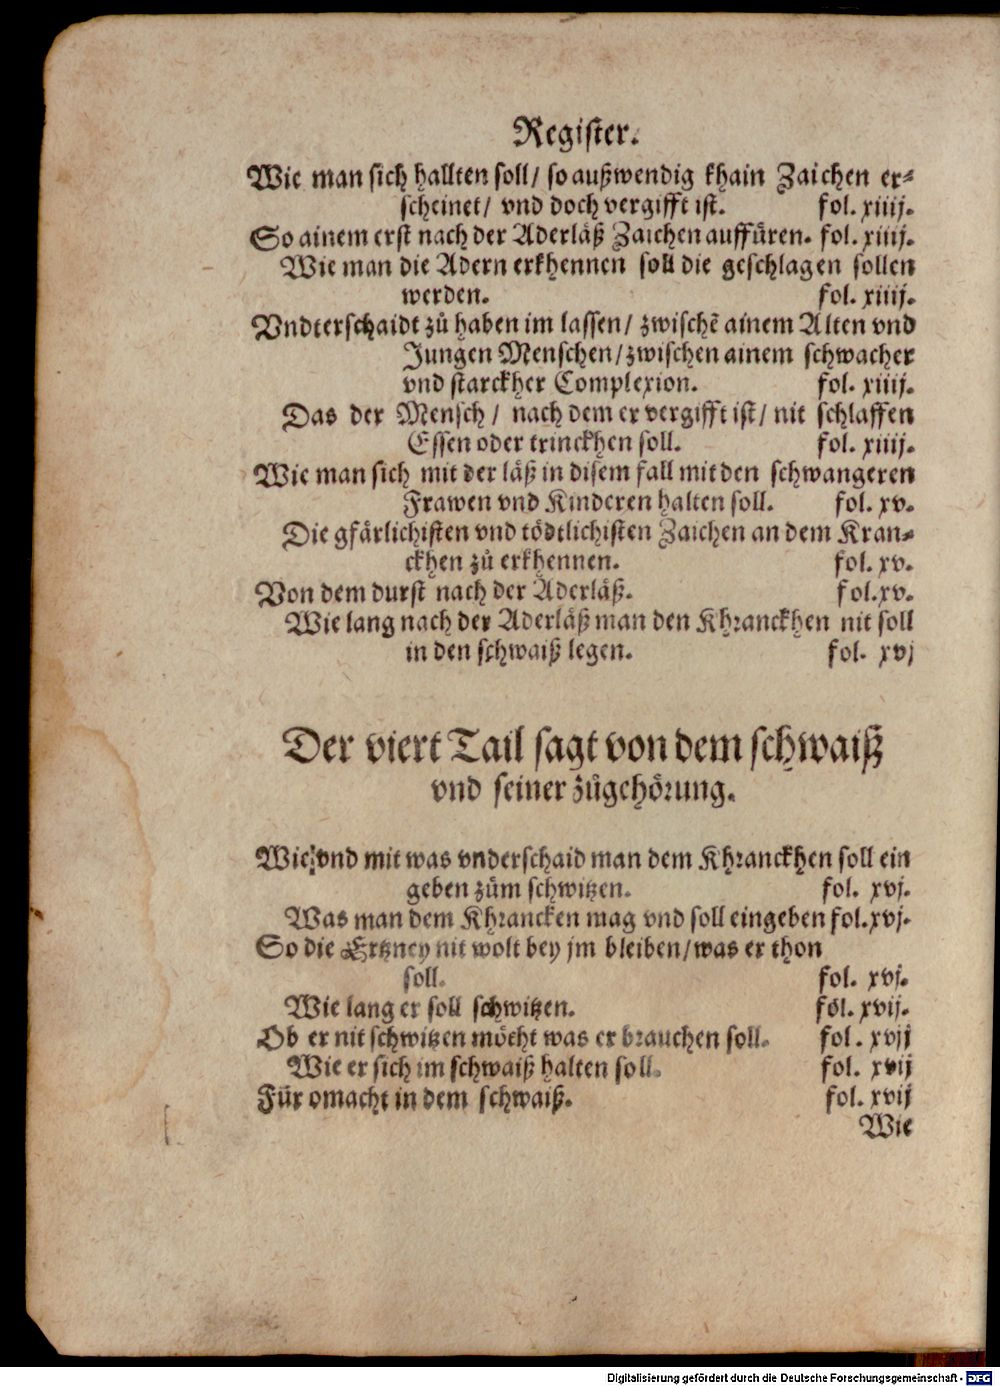 Register.
Wie man sich hallten soll/ so außwendig khain Zaichen er⸗
scheinet/ vnd doch vergifft ist. fol. xiiij.
So ainem erst nach der Aderläß Zaichen auffüren. fol. xiiij.
Wie man die Adern erkhennen soll die geschlagen sollen
werden. fol. xiiij.
Vndterschaidt zů haben im lassen/ zwischē ainem Alten vnd
Jungen Menschen/ zwischen ainem schwacher
vnd starckher Complexion. fol. xiiij.
Das der Mensch/ nach dem er vergifft ist/ nit schlaffen
Essen oder trinckhen soll. fol. xiiij.
Wie man sich mit der läß in disem fall mit den schwangeren
Frawen vnd Kinderen halten soll. fol. xv.
Die gfärlichisten vnd tödtlichisten Zaichen an dem Kran⸗
ckhen zů erkhennen. fol. xv.
Von dem durst nach der Aderläß. fol. xv.
Wie lang nach der Aderläß man den Khranckhen nit soll
in den schwaiß legen. fol. xvj
Der viert Tail sagt von dem schwaiß
vnd seiner zůgehörung.
Wie/ vnd mit was vnderschaid man dem Khranckhen soll ein
geben zům schwitzen. fol. xvj.
Was man dem Khrancken mag vnd soll eingeben fol. xvj.
So die Ertzney nit wolt bey jm bleiben/ was er thon
soll. fol. xvj.
Wie lang er soll schwitzen. fol. xvij.
Ob er nit schwitzen möcht was er brauchen soll. fol. xvij
Wie er sich im schwaiß halten soll. fol. xvij
Für omacht in dem schwaiß. fol. xvij
Wie
Digitalisierung gefördert durch die Deutsche Forschungsgemeinschaft - DFG